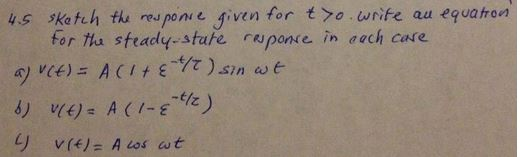 4.5 sketch the response given for t>0. write an equation
for the steady-state response in each case
a) v(t) = A(1+ε^-t/τ) sin ωt
b) v(t) = A(1-ε^-t/τ)
c) v(t) = A cos ωt